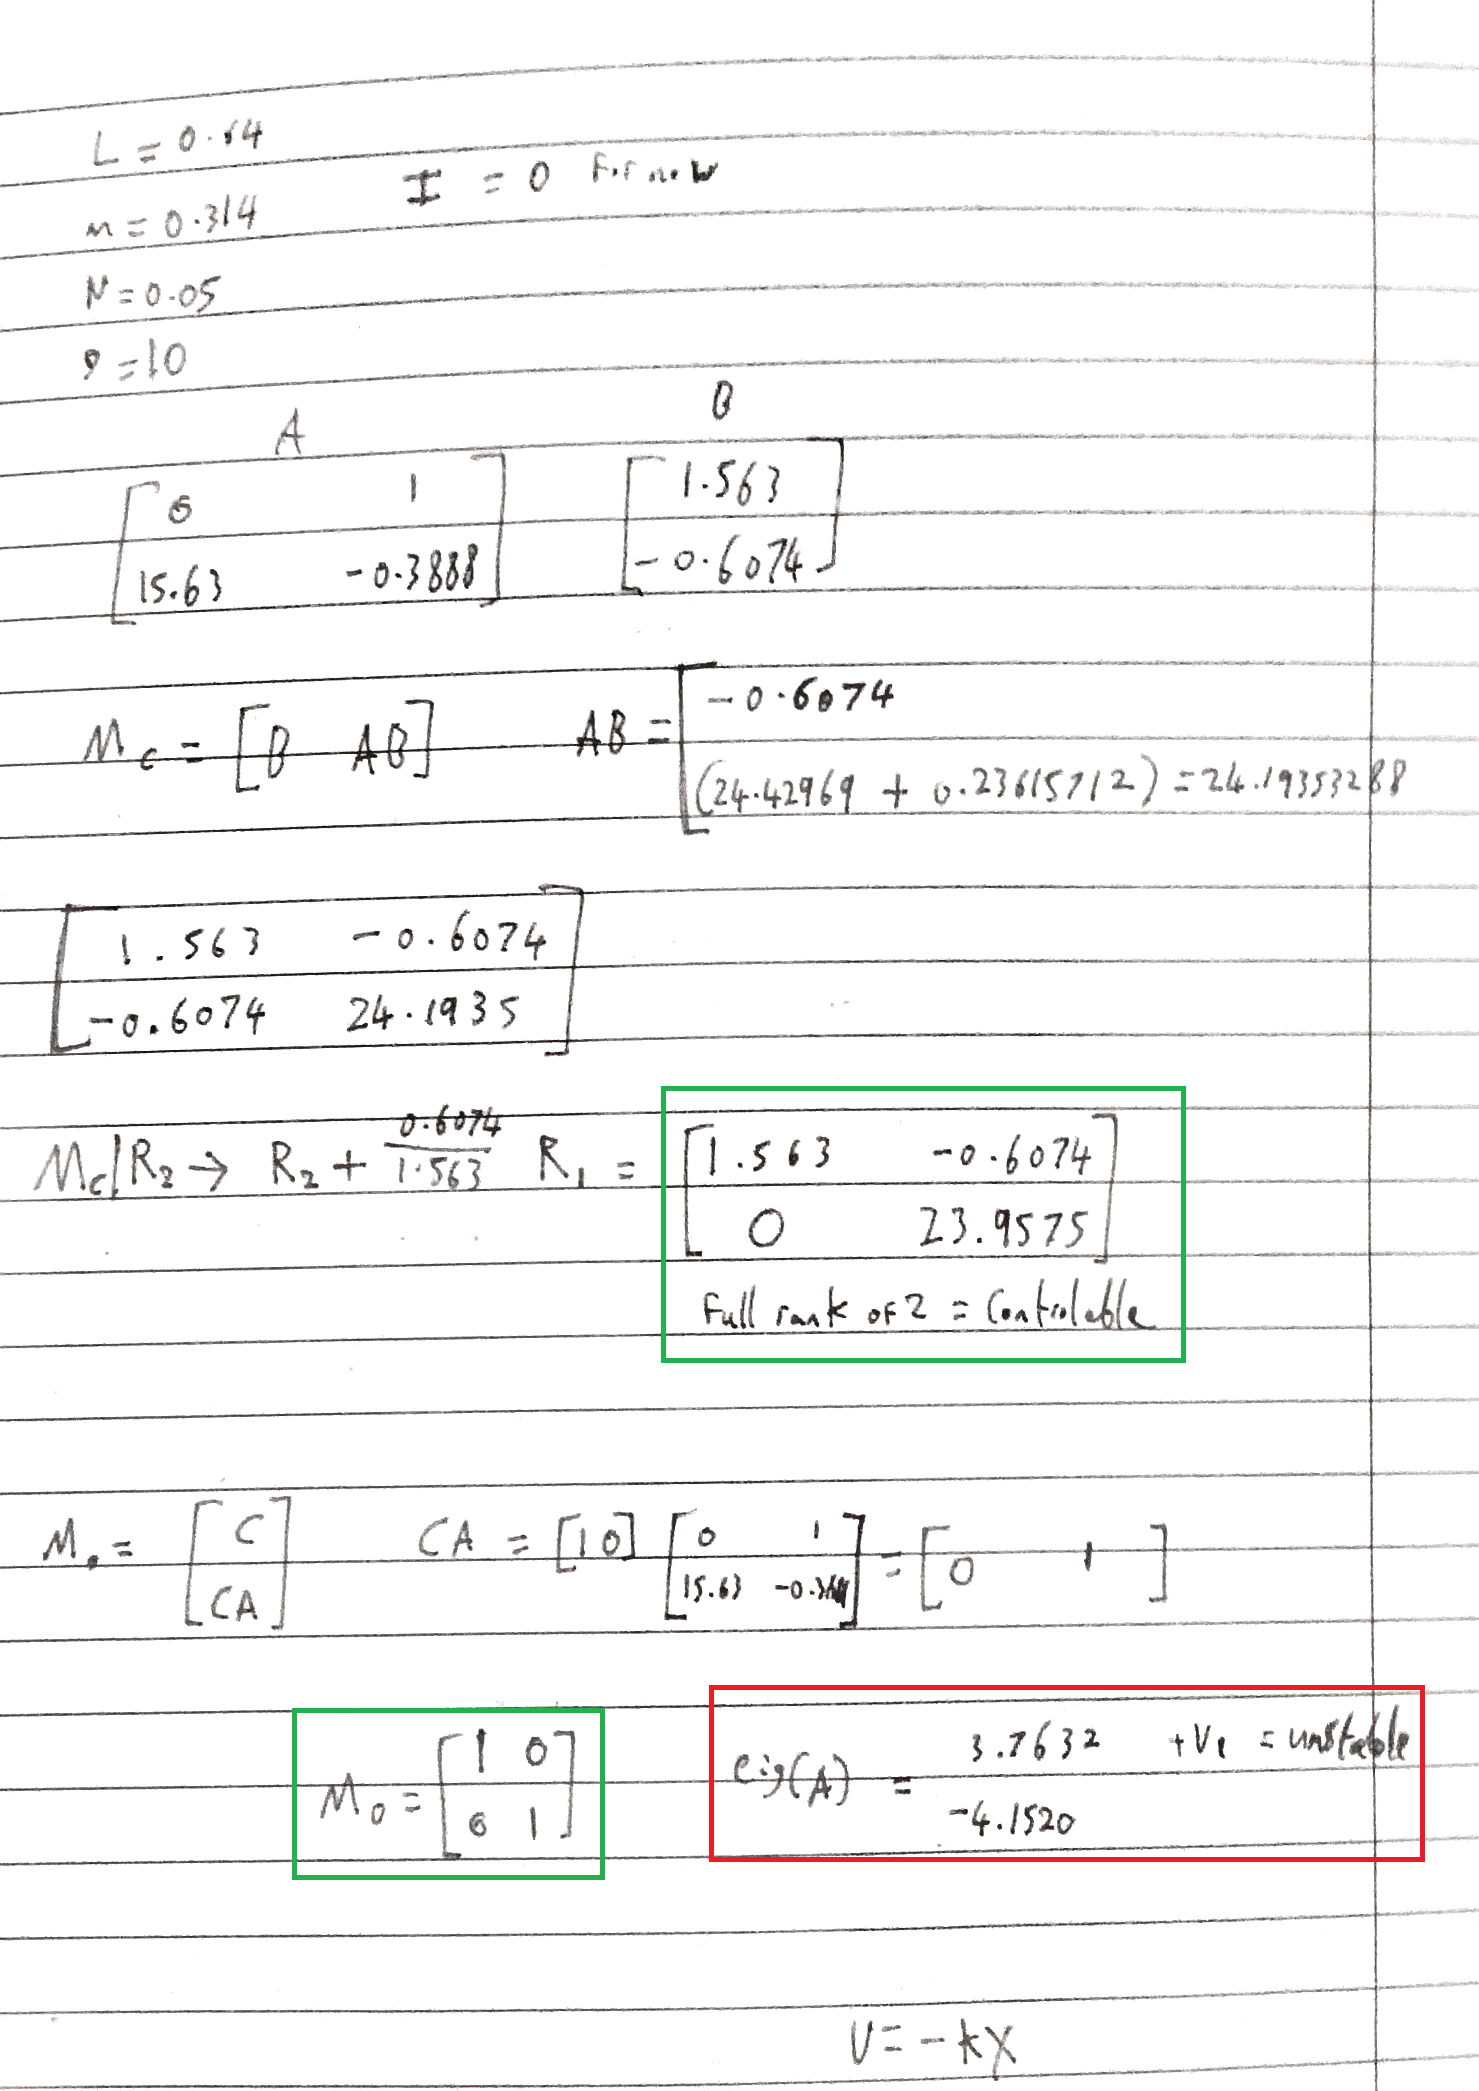 L = 0.64
I = 0 For now
m = 0.314
N = 0.05
g = 10
A B
[ 0 1 ; 15.63 -0.3888 ] [ 1.563 ; -0.6074 ]
Mc = [ B AB ] AB = [ -0.6074
(24.42969 + 0.23615712) = 24.19353288
[ 1.563 -0.6074
-0.6074 24.1935 ]
Mc | R2 → R2 + 0.6074/1.563 R1 = [ 1.563 -0.6074
0 23.9575 ]
Full rank of 2 = Controlable
Mo = [ C ; CA ] CA = [1 0] [ 0 1 ; 15.63 -0.388 ] = [ 0 1 ]
Mo = [ 1 0 ; 0 1 ]
eig(A) = 3.7632 +Ve = unstable
-4.1520
U = -kx